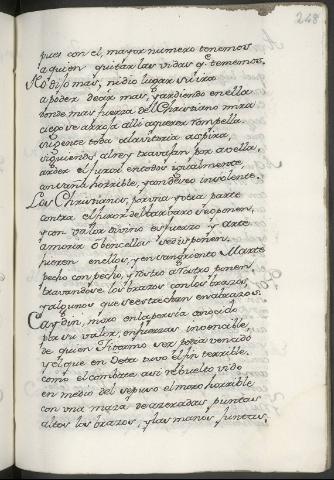 248
pues con el, mayor numero tenemos
a quien quitar las vidas q̃ tememos,
No dijo mas, ni dio lugar su ira
a poder decir mas, y ardiendo en ella
donde mas fuerza del Christiano mira
ciego se arroja alli a querer rompella
su gente toda a la vitoria aspira,
siguiendo al rey travajan por avella,
arder el furor en todos igualmente,
con saña horrible, y
Los Christianos, por una y otra parte
contra el furor del barbaro se oponen,
y con valor divino esfuerzo y arte
a morir o bencellas se disponen,
hieren en ellos, y en sangriento Marte
pecho con pecho, y Rostro a Rostro ponen,
travandose los brazos con los brazos,
y algunos que se estrechan en abrazos.
Caydin, moro en la persia conocido
por su valor, en fuerzas invencible,
de quien Titanno ser podia vencido
y el que en Oeta tuvo el fin terrible.
como el combate asi rebuelto vido
en medio del se puso el moro horrible
con una maza de azeradas puntas
altos los brazos, y las manos juntas,